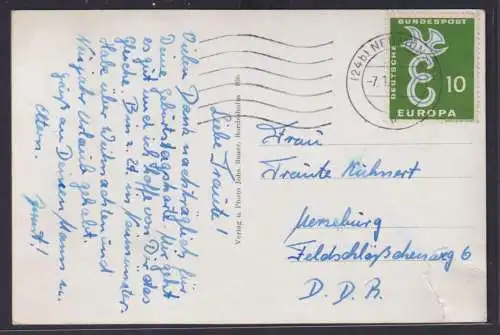 Liebe Traute!
Vielen Dank nachträglich für
Deine Geburtstagskarte. Mir geht
es gut und ich hoffe von Dir das
Gleiche. Bin z. Zt. in Neumünster.
Habe über Weihnachten und
Neujahr Urlaub gehabt.
Gruß an Deinen Mann u.
Eltern.
Verlag u. Photo John.
(24b) NE
-7.1
DEUTSCHE BUNDESPOST
10
EUROPA
Frau
Traute Kühnert
Merseburg
Feldschlößchenweg 6
D. D. R.